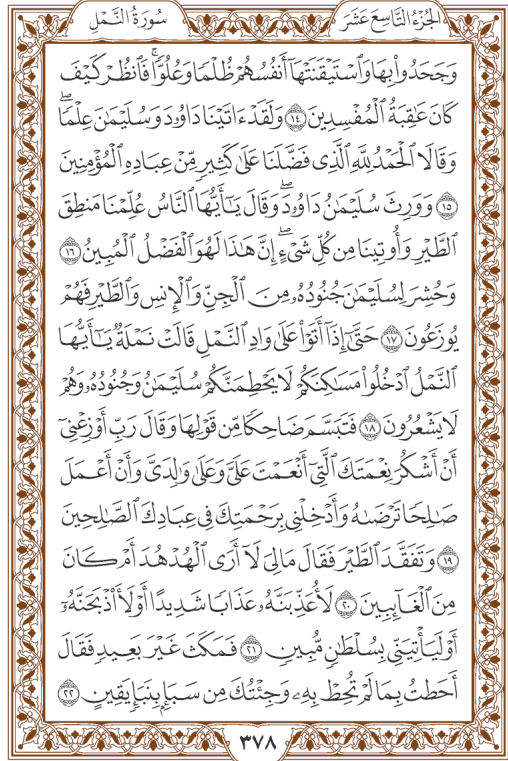 الجُزْءُ التَّاسِعَ عَشَرَ
سُورَةُ النَّمْلِ
وَجَحَدُوا۟ بِهَا وَٱسْتَيْقَنَتْهَآ أَنفُسُهُمْ ظُلْمًا وَعُلُوًّا ۚ فَٱنظُرْ كَيْفَ
كَانَ عَٰقِبَةُ ٱلْمُفْسِدِينَ ١٤ وَلَقَدْ ءَاتَيْنَا دَاوُۥدَ وَسُلَيْمَٰنَ عِلْمًا ۖ
وَقَالَا ٱلْحَمْدُ لِلَّهِ ٱلَّذِى فَضَّلَنَا عَلَىٰ كَثِيرٍ مِّنْ عِبَادِهِ ٱلْمُؤْمِنِينَ
١٥ وَوَرِثَ سُلَيْمَٰنُ دَاوُۥدَ ۖ وَقَالَ يَٰٓأَيُّهَا ٱلنَّاسُ عُلِّمْنَا مَنطِقَ
ٱلطَّيْرِ وَأُوتِينَا مِن كُلِّ شَىْءٍ ۖ إِنَّ هَٰذَا لَهُوَ ٱلْفَضْلُ ٱلْمُبِينُ ١٦
وَحُشِرَ لِسُلَيْمَٰنَ جُنُودُهُۥ مِنَ ٱلْجِنِّ وَٱلْإِنسِ وَٱلطَّيْرِ فَهُمْ
يُوزَعُونَ ١٧ حَتَّىٰٓ إِذَآ أَتَوْا۟ عَلَىٰ وَادِ ٱلنَّمْلِ قَالَتْ نَمْلَةٌ يَٰٓأَيُّهَا
ٱلنَّمْلُ ٱدْخُلُوا۟ مَسَٰكِنَكُمْ لَا يَحْطِمَنَّكُمْ سُلَيْمَٰنُ وَجُنُودُهُۥ وَهُمْ
لَا يَشْعُرُونَ ١٨ فَتَبَسَّمَ ضَاحِكًا مِّن قَوْلِهَا وَقَالَ رَبِّ أَوْزِعْنِىٓ
أَنْ أَشْكُرَ نِعْمَتَكَ ٱلَّتِىٓ أَنْعَمْتَ عَلَىَّ وَعَلَىٰ وَٰلِدَىَّ وَأَنْ أَعْمَلَ
صَٰلِحًا تَرْضَىٰهُ وَأَدْخِلْنِى بِرَحْمَتِكَ فِى عِبَادِكَ ٱلصَّٰلِحِينَ
١٩ وَتَفَقَّدَ ٱلطَّيْرَ فَقَالَ مَالِىَ لَآ أَرَى ٱلْهُدْهُدَ أَمْ كَانَ
مِنَ ٱلْغَآئِبِينَ ٢٠ لَأُعَذِّبَنَّهُۥ عَذَابًا شَدِيدًا أَوْ لَأَا۟ذْبَحَنَّهُۥٓ
أَوْ لَيَأْتِيَنِّى بِسُلْطَٰنٍ مُّبِينٍ ٢١ فَمَكَثَ غَيْرَ بَعِيدٍ فَقَالَ
أَحَطتُ بِمَا لَمْ تُحِطْ بِهِۦ وَجِئْتُكَ مِن سَبَإٍۭ بِنَبَإٍ يَقِينٍ ٢٢
٣٧٨